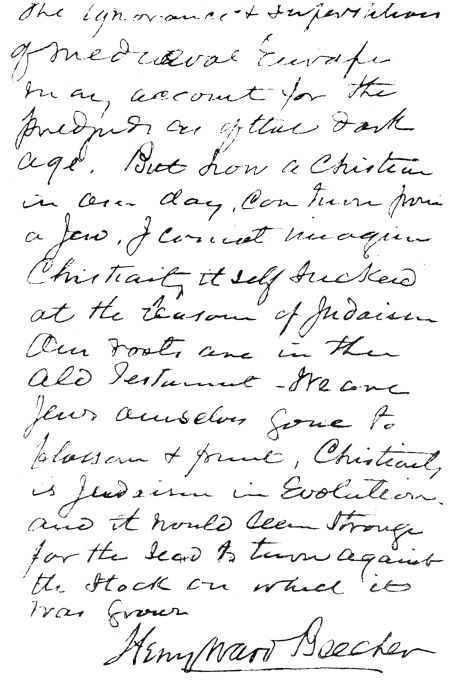 The ignorance & superstitions
of mediaeval Europe
may account for the
predjudices of that dark
age. But how a Christian
in our day, can turn from
a Jew, I cannot imagine
Christianity itself sucked
at the bosom of Judaism
Our roots are in the
Old Testament - We are
Jews ourselves gone to
blossom & fruit, Christianity
is Judaism in Evolution.
and it would seem strange
for the seed to turn against
the stock on which it
was grown
Henry Ward Beecher